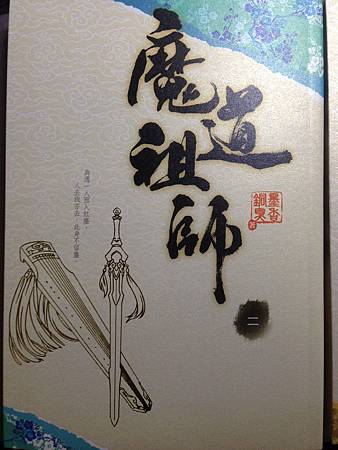 魔道祖師
墨香
銅臭
著
為逢一人而入紅塵，
人去我亦去，此身不留塵
二